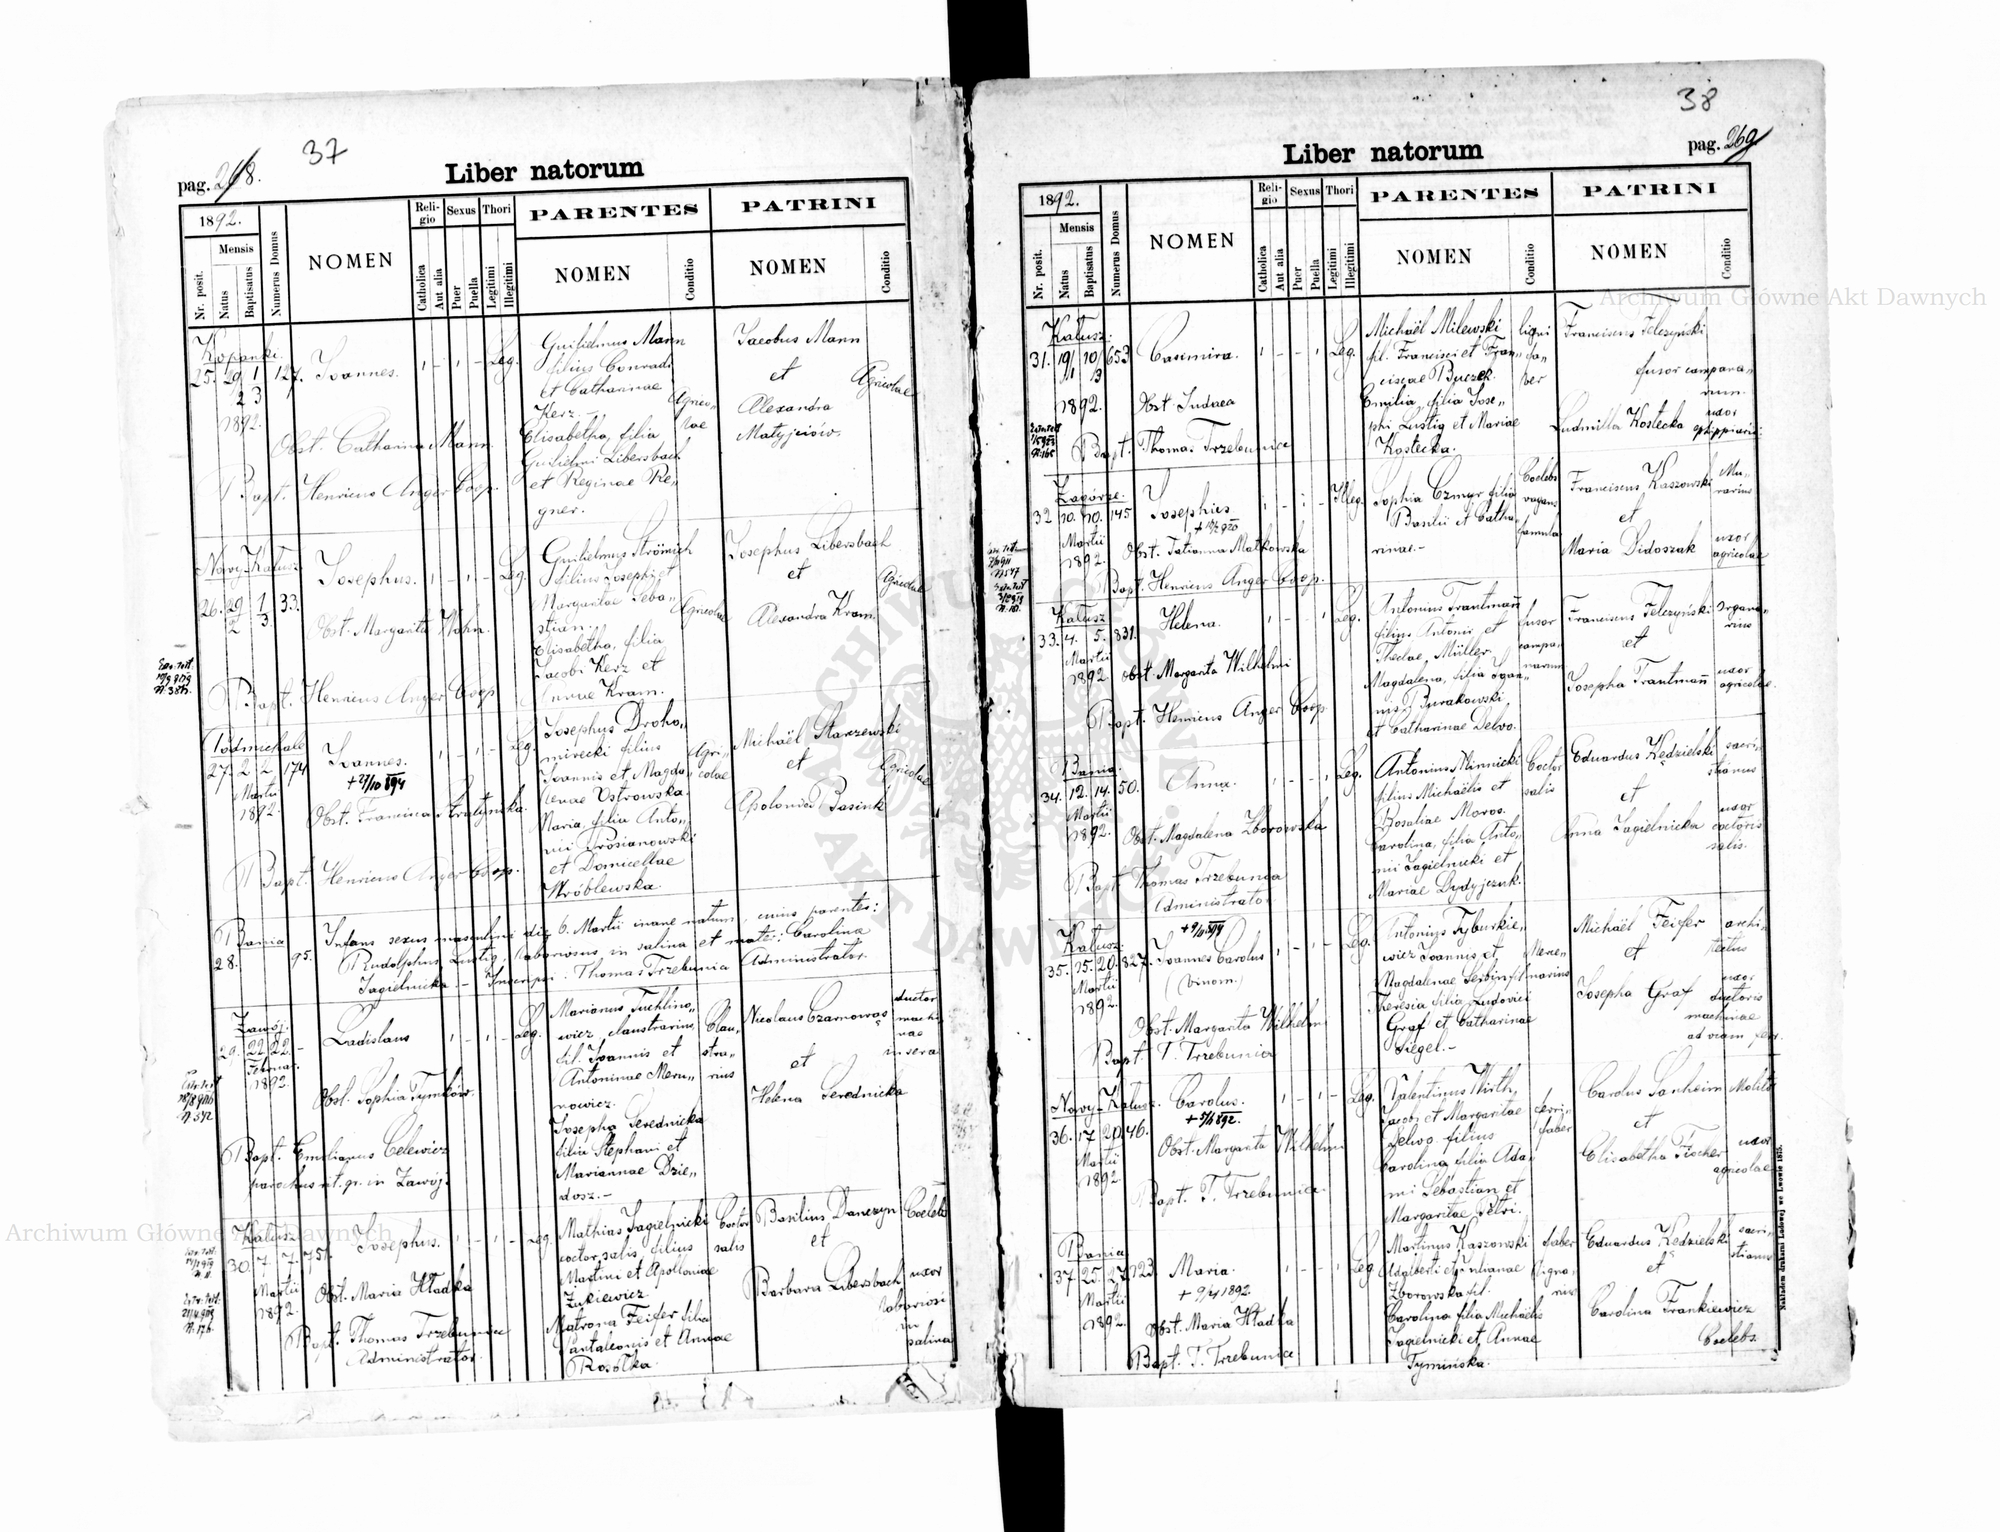 37
pag. 268.
Liber natorum
1892.
Religio
Sexus
Thori
PARENTES
PATRINI
Nr. posit.
Mensis
Natus
Baptisatus
Numerus Domus
NOMEN
Catholica
Aut alia
Puer
Puella
Legitimi
Illegitimi
NOMEN
Conditio
NOMEN
Conditio
Kopanki.
25. 29 1 127. Joannes. 1 - 1 - Leg.
2 3
1892.
Obst. Catharina Mann.
Bapt. Henricus Anger Coop.
Guilielmus Mann
filius Conradi
et Catharinae
Kerz.
Elisabetha, filia
Guilielmi Libersbach
et Reginae Re„
gner.
Agrico„
lae
Jacobus Mann
et
Alexandra
Matyjciów.
Agricolae
Nowy-Kałusz
26. 29 1 33. Josephus. 1 - 1 - Leg.
2 3.
Obst. Margarita Wohn.
Bapt. Henricus Anger Coop.
Guilielmus Strömich
filius Josephi et
Margaritae Seba„
stian.
Elisabetha, filia
Jacobi Kerz et
Annae Kram.
Agricolae
Josephus Libersbach
et
Alexandra Kram.
Agricolae
Podmichale
27. 2. 2. 174 Joannes. 1 - 1 - Leg.
Martii
1892.
+ 27/10 894
Obst. Francisca Stratyńska.
Bapt. Henricus Anger Coop.
Josephus Droho„
mirecki filius
Joannis et Magda„
lenae Ostrowska.
Maria, filia Anto„
nii Prosianowski
et Domicellae
Wróblewska.
Agri„
colae
Michaël Starzewski
et
Apolonia Basiuk
Agricolae
Bania
28. 95.
Infans sexus masculini die 6. Martii inane natum, cuius parentes:
Rudolphus Lustig, laboriosus in salina et mater: Carolina
Jagielnicka. - Inscripsi: Thomas Trzebunia Administrator.
Zawój.
29. 22. 22. - Ladislaus 1 - 1 - Leg.
Februar.
1892.
Obst. Sophia Tymków.
Bapt. Emilianus Celewicz
parochus rit. gr. in Zawój.
Marianus Tuchlino„
wicz, claustrarius,
fil. Joannis et
Antoninae Meru„
nowicz.
Josepha Serednicka
filia Stephani et
Mariannae Dzie„
dosz.-
Clau„
stra„
rius
Nicolaus Czarnowąs
et
Helena Serednicka
ductor
machi„
nae
in serra
Kałusz.
30. 7. 7. 751. Josephus. 1 - 1 - Leg.
Martii
1892.
Obst. Maria Hładka
Bapt. Thomas Trzebunia
Administrator.
Mathias Jagielnicki
coctor salis, filius
Martini et Apolloniae
Żukiewicz.
Matrona Feifer filia
Pantaleonis et Annae
Rosołka.
Coctor
salis
Basilius Danczyn
et
Barbara Libersbach
Coelebs
uxor
laboriosi
in
salina
38
pag. 269
Liber natorum
1892.
Religio
Sexus
Thori
PARENTES
PATRINI
Nr. posit.
Mensis
Natus
Baptisatus
Numerus Domus
NOMEN
Catholica
Aut alia
Puer
Puella
Legitimi
Illegitimi
NOMEN
Conditio
NOMEN
Conditio
Kałusz.
31. 19/1 10/3 653 Casimira. 1 - - 1 Leg.
1892.
Obst. Judaea
Bapt. Thomas Trzebunia
Michaël Milewski
fil. Francisci et Fran„
ciscae Buczek.
Emilia, filia Jose„
phi Lustig et Mariae
Kostecka.
ligni
fa„
ber
Franciscus Felczyński
fusor campana„
rum.
Ludmilla Kostecka uxor
ephippiarii.
Zagórze.
32 10. 10. 145 Josephus 1 - 1 - Illeg.
Martii
1892.
Obst. Tatianna Matkowska
Bapt. Henricus Anger Coop.
Sophia Czmyr filia
Basilii et Catha„
rinae.-
Coelebs
vagans
famula
Franciscus Kaszowski
et
Maria Didoszak
Mu„
rarius
uxor
agricolae
Kałusz
33. 4. 5. 831. Helena. 1 - - 1 Leg.
Martii
1892
Obst. Margarita Wilhelmi
Bapt. Henricus Anger Coop.
Antonius Trautmann
filius Antonii et
Theclae, Müller
Magdalena, filia Joan„
nis Burakowski,
et Catharinae Delwo.
fusor
campa„
narum
Franciscus Felczyński
et
Josepha Trautmann
organa„
rius
uxor
agricolae.
Bania.
34. 12. 14. 50. Anna. 1 - - 1 Leg.
Martii
1892.
Obst. Magdalena Zborowska
Bapt. Thomas Trzebunia
Administrator.
Antonius Winnicki
filius Michaëlis et
Rosaliae Moroz.
Carolina, filia Anto„
nii Jagielnicki et
Mariae Dydyjczuk.
Coctor
salis
Eduardus Kędzielski
et
Anna Jagielnicka
sacri„
stianus
uxor
coctoris
salis.
Kałusz.
35. 15. 20. 827. Joannes Carolus 1 - 1 - Leg.
Martii
1892.
(binom.)
Obst. Margarita Wilhelmi
Bapt. T. Trzebunia
Antonius Tyburkie„
wicz Joannis et
Magdalenae Serbin fil.
Theresia filia Ludovici
Graf et Catharinae
Siegel.-
Merce„
narius
Michaël Feifer
et
Josepha Graf
archi„
tectus
uxor
ductoris
machinae
ad viam ferr.
Nowy-Kałusz.
36. 17. 20. 46. Carolus. 1 - 1 - Leg.
Martii
1892.
Obst. Margarita Wilhelmi
Bapt. T. Trzebunia.
Valentinus Wirth,
Jacobi et Margaritae
Delwo filius
Carolina filia Ada„
mi Sebastian et
Margaritae Petri.
ferri„
faber
Carolus Sanheim
et
Elisabetha Fischer
Molitor
uxor
agricolae
Bania
37. 25. 27. 123. Maria. 1 - - 1 Leg
Martii
1892.
+ 9/4 1892.
Obst. Maria Hładka
Bapt. T. Trzebunia
Martinus Kaszowski
Adalberti et Julianae
Zborowska fil.
Carolina filia Michaëlis
Jagielnicki et Annae
Tymińska.
faber
ligna„
rius
Eduardus Kędzielski
et
Carolina Frankiewicz
sacri„
stianus
Coelebs.
Nakładem drukarni Ludowej we Lwowie 1875.
Archiwum Główne Akt Dawnych
Archiwum Główne Akt Dawnych
ARCHIWUM GŁÓWNE AKT DAWNYCH